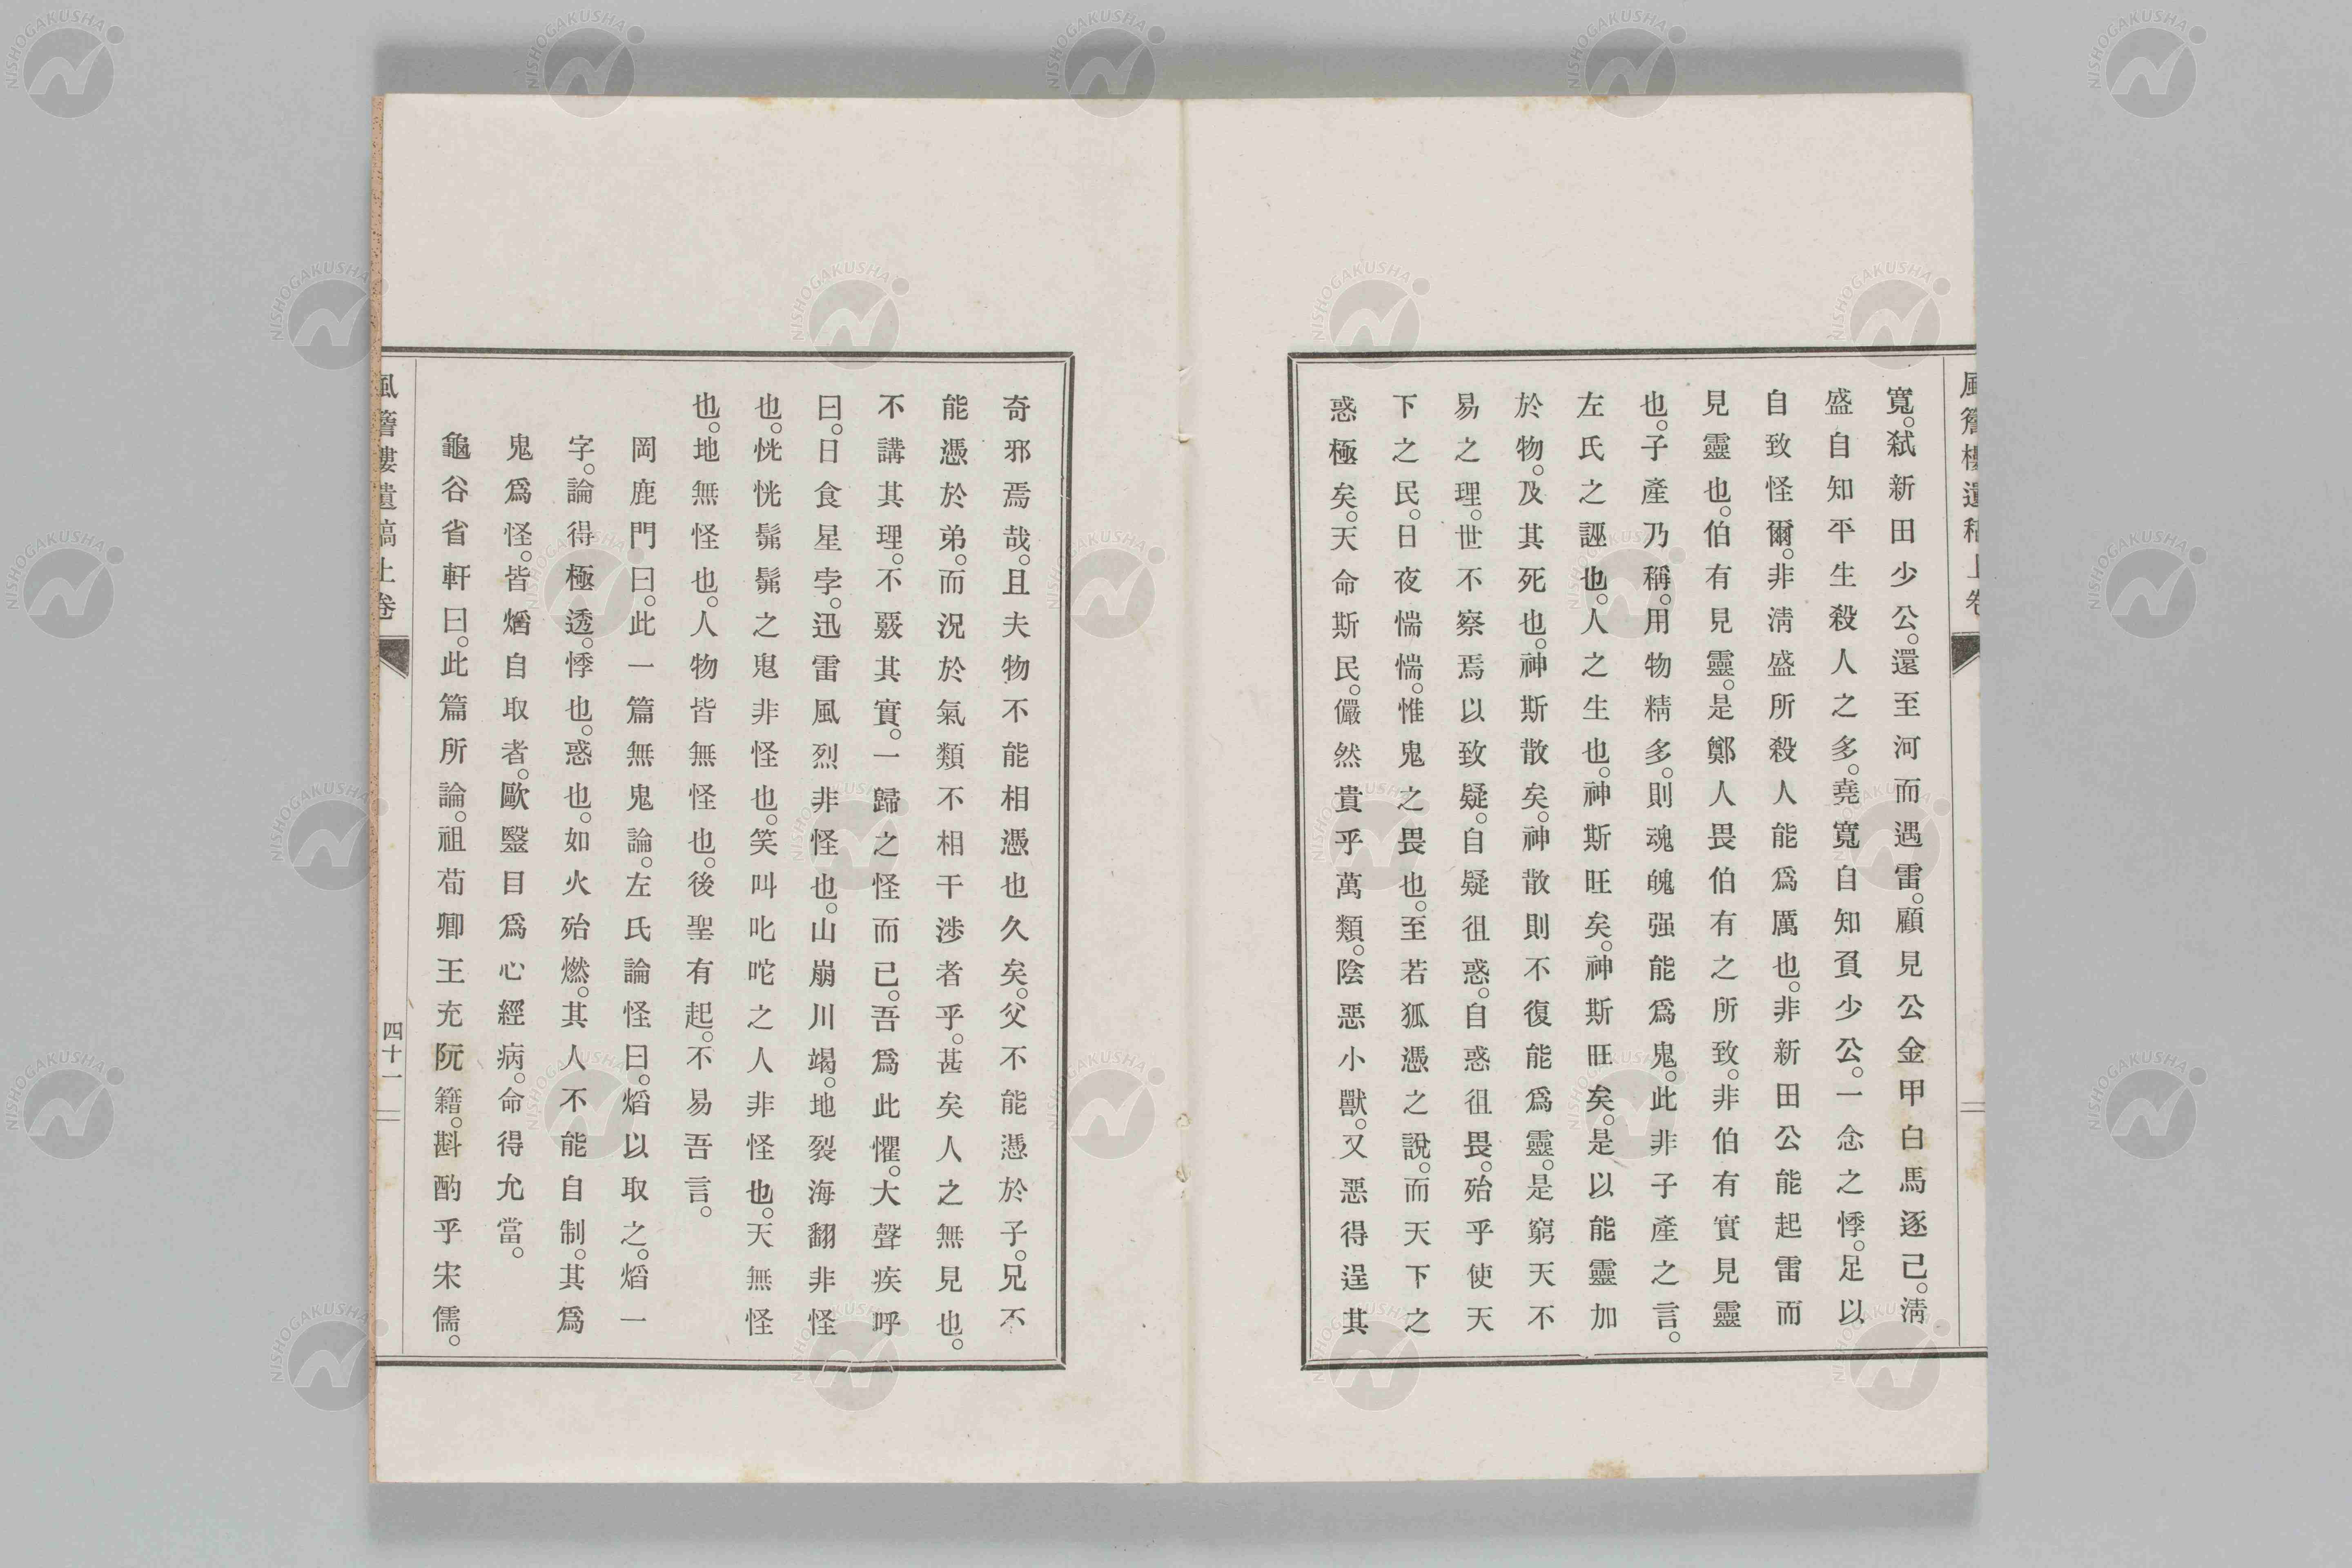 風簷樓遺稿上卷
寬。弑新田少公。還至河而遇雷。顧見公金甲白馬逐己。淸
盛自知平生殺人之多。堯寬自知負少公。一念之悸。足以
自致怪爾。非淸盛所殺人能爲厲也。非新田公能起雷而
見靈也。伯有見靈。是鄭人畏伯有之所致。非伯有實見靈
也。子產乃稱。用物精多。則魂魄强能爲鬼。此非子產之言。
左氏之誣也。人之生也。神斯旺矣。神斯旺矣。是以能靈加
於物。及其死也。神斯散矣。神散則不復能爲靈。是窮天不
易之理。世不察焉以致疑。自疑徂惑。自惑徂畏。殆乎使天
下之民。日夜惴惴。惟鬼之畏也。至若狐憑之說。而天下之
惑極矣。天命斯民。儼然貴乎萬類。陰惡小獸。又惡得逞其
奇邪焉哉。且夫物不能相憑也久矣。父不能憑於子。兄不
能憑於弟。而況於氣類不相干涉者乎。甚矣人之無見也。
不講其理。不覈其實。一歸之怪而已。吾爲此懼。大聲疾呼
曰。日食星孛。迅雷風烈非怪也。山崩川竭。地裂海翻非怪
也。恍恍髴髴之鬼非怪也。笑叫叱咤之人非怪也。天無怪
也。地無怪也。人物皆無怪也。後聖有起。不易吾言。
岡鹿門曰。此一篇無鬼論。左氏論怪曰。熖以取之。熖一
字。論得極透。悸也。惑也。如火殆燃。其人不能自制。其爲
鬼爲怪。皆熖自取者。歐毉目爲心經病。命得允當。
龜谷省軒曰。此篇所論。祖荀卿王充阮籍。斟酌乎宋儒。
風簷樓遺稿上卷
四十一